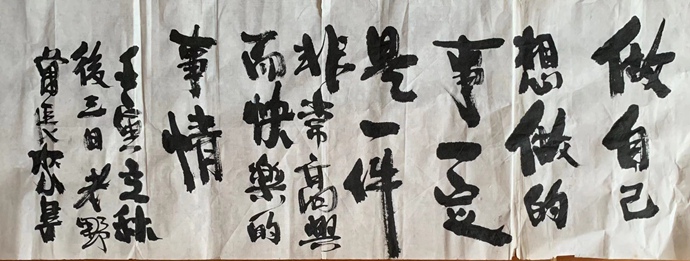 做自己
想做的
事一定
是一件
非常高興
而快樂的
事情
壬寅立秋
後三日老野